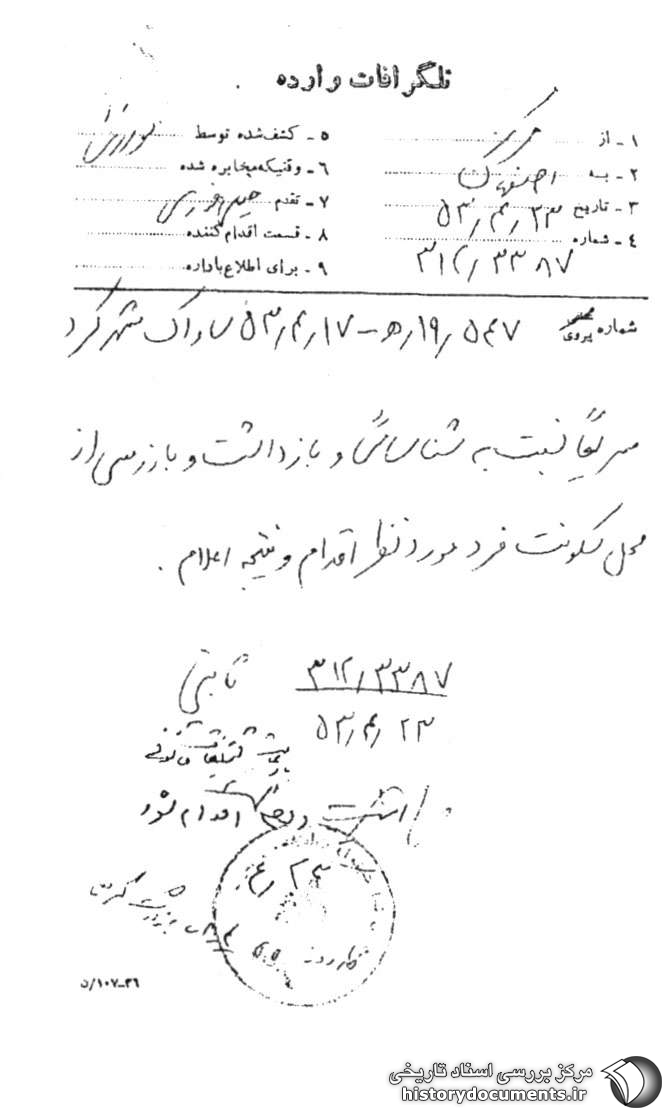 تلگرافات وارده
۱ - از مرکز
۲ - به اصفهان
۳ - تاریخ ۵۳/۴/۲۳
۴ - شماره ۳۱۲/۳۳۸۷
۵ - کشف شده توسط
۶ - وقتیکه مخابره شده
۷ - تقدم
۸ - قسمت اقدام کننده
۹ - برای اطلاع باداره
شماره پیروی ۵۴۷/۱۹/ﻫ - ۵۳/۴/۱۷ ساواک شهر کرد
سریعاً نسبت به شناسائی و بازداشت و بازرسی از
محل سکونت فرد مورد نظر اقدام و نتیجه اعلام .
۳۱۲/۳۳۸۷ ثابتی
۵۳/۴/۲۳
اقدام شود
۳۶-۱۰۷/ن
مرکز بررسی اسناد تاریخی
historydocuments.ir